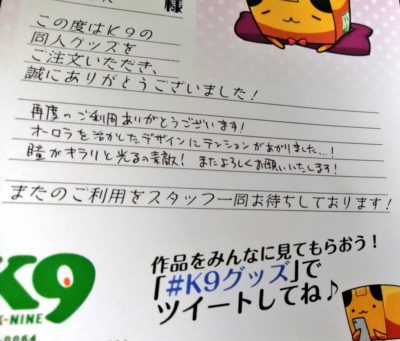 様
この度はK9の
同人グッズを
ご注文いただき、
誠にありがとうございました!
再度のご利用ありがとうございます!
オーロラを活かしたデザインにテンションがあがりました…!
瞳がキラリと光るの素敵! またよろしくお願いいたします!
またのご利用をスタッフ一同お待ちしております!
作品をみんなに見てもらおう!
「#K9グッズ」で
ツイートしてね♪
K9
K-NINE
-0064